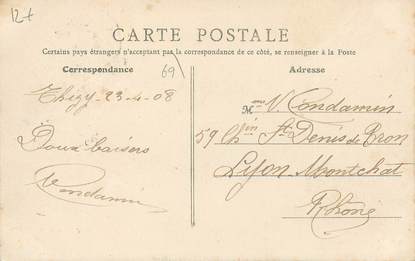 12+
CARTE POSTALE
Certains pays étrangers n'acceptant pas la correspondance de ce côté, se renseigner à la Poste
Correspondance
69
Adresse
Thizy - 23-4-08
Doux baisers
Condamin
Mme V. Condamin
59 Chin St Denis de Bron
Lyon Montchat
Rhône